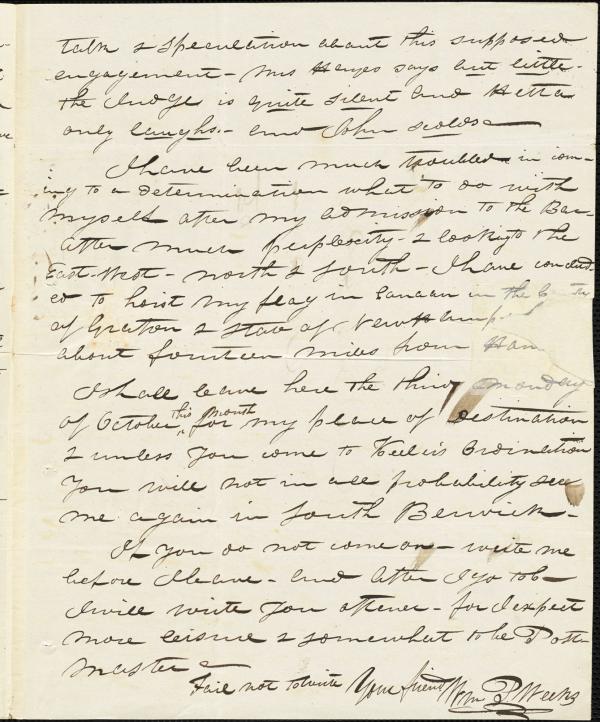 talk & speculation about this supposed
engagement - Mrs Hayes says but little -
the Judge is quite silent and Hetta
only laughs - and John scolds
I have been much troubled in com-
ing to a determination what to do with
myself after my admission to the Bar -
after much perplexity - & looking to the
East - West - north & South - I have conclud
ed to hoist my flag in Canaan in the
of Grafton & State of New Hamp
about fourteen miles from Han
I shall leave here the third monday
of October this month for my place of destination
& unless you come to ordination
you will not in all probability see
me again in South Berwick -
If you do not come on - write me
before I leave - and after I go to
I will write you oftener - for I expect
more leisure & somewhat to be Post
master
Fail not to write Your friend Wm P. Weeks